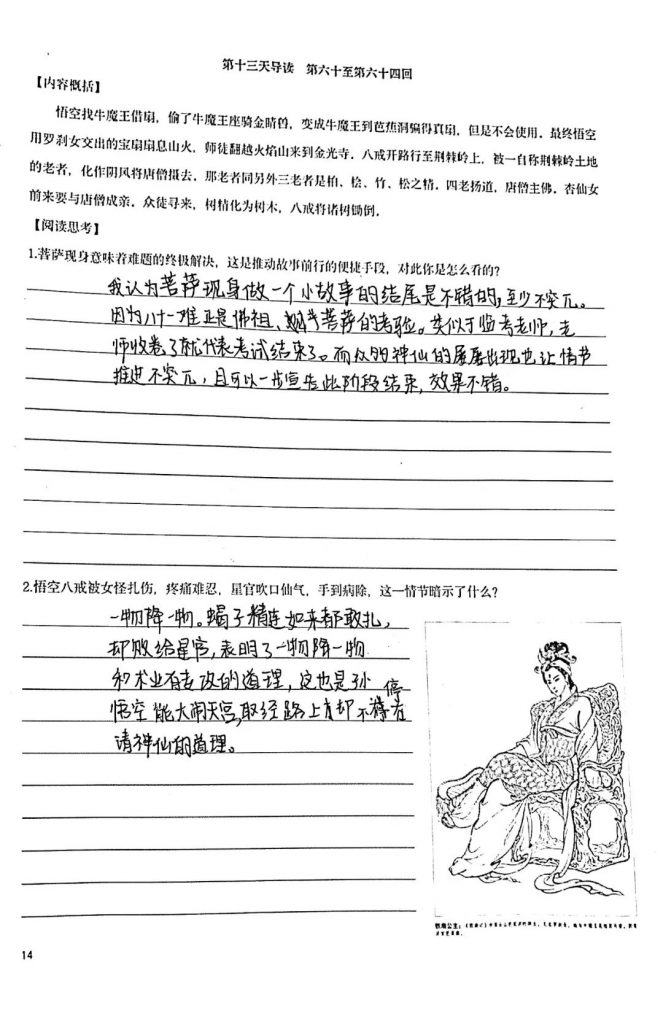 第十三天导读 第六十至第六十四回
【内容概括】
悟空找牛魔王借扇，偷了牛魔王座骑金睛兽，变成牛魔王到芭蕉洞骗得真扇，但是不会使用．最终悟空
用罗刹女交出的宝扇扇息山火，师徒翻越火焰山来到金光寺．八戒开路行至荆棘岭上，被一自称荆棘岭土地
的老者，化作阴风将唐僧摄去．那老者同另外三老者是柏、桧、竹、松之精．四老扬道，唐僧主佛．杏仙女
前来要与唐僧成亲．众徒寻来，树精化为树木，八戒将诸树锄倒．
【阅读思考】
1.菩萨现身意味着难题的终极解决，这是推动故事前行的便捷手段，对此你是怎么看的？
我认为菩萨现身做一个小故事的结尾是不错的，至少不突兀。
因为八十一难正是佛祖、菩萨的考验。类似于监考老师，老
师收卷了就代表考试结束了。而众多神仙的屡屡出现也让情节
推进不突兀，且可以一步宣告此阶段结束，效果不错。
2.悟空八戒被女怪扎伤，疼痛难忍，星官吹口仙气，手到病除，这一情节暗示了什么？
一物降一物。蝎子精连如来都敢扎，
却败给星官，表明了一物降一物
和术业有专攻的道理，这也是孙
悟空能大闹天宫，取经路上却不停在
请神仙的道理。
铁扇公主：
14